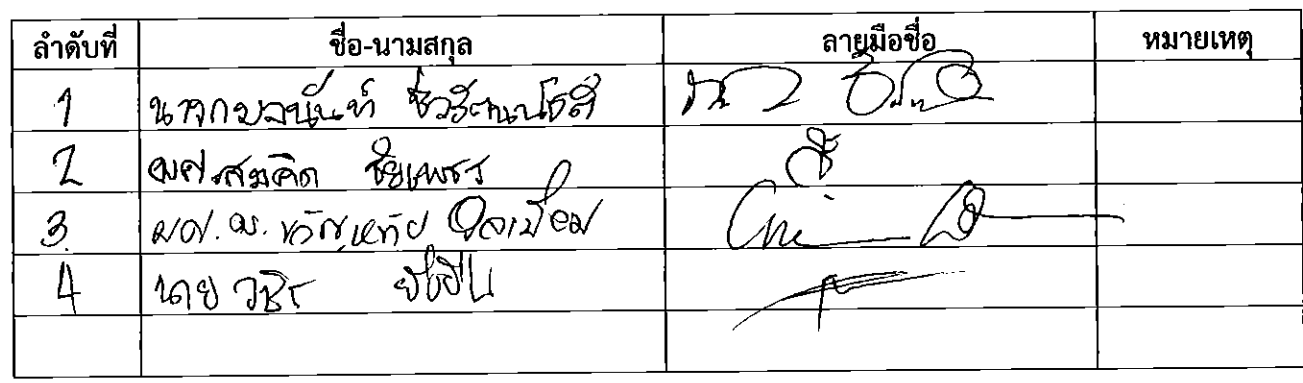 ลำดับที่ ชื่อ-นามสกุล ลายมือชื่อ หมายเหตุ
1 นายกมลนันท์ ชีวรัตนาโชติ
2 ผศ.สมคิด ชัยเพชร
3. ผศ.ดร. ขวัญหทัย
4 นาย วชิร ยั่งยืน